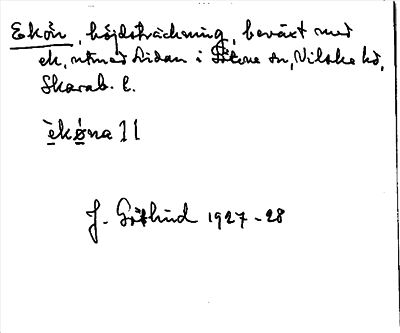 Ekön, höjdsträckning, beväxt med
ek, utmed Lidan i Sörene sn, Vilske hd,
Skarab. l.
èkø̀na 11
J. Götlind 1927-28